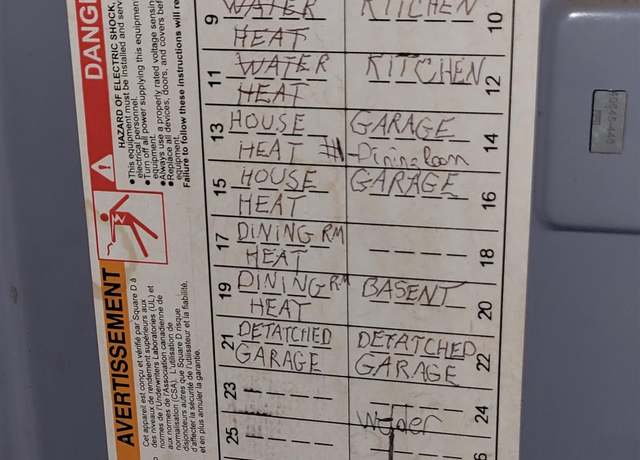 DANGE
HAZARD OF ELECTRIC SHOCK,
•This equipment must be installed and serv
electrical personnel.
•Turn off all power supplying this equipmen
equipment.
•Always use a properly rated voltage sensin
•Replace all devices, doors, and covers bef
equipment.
Failure to follow these instructions will re
AVERTISSEMENT
Cet appareil est conçu et vérifié par Square D à
des niveaux de rendement supérieurs aux
normes de l'Underwriters Laboratories (UL) et
aux normes de l'Association canadienne de
normalisation (CSA). L'utilisation de
disjoncteurs autres que Square D risque
d'affecter la sécurité de l'utilisateur et la fiabilité,
et en plus annuler la garantie.
9 WATER KITCHEN 10
HEAT
11 WATER KITCHEN 12
HEAT
13 HOUSE GARAGE 14
HEAT # Dining Room
15 HOUSE GARAGE 16
HEAT
17 DINING RM 18
HEAT
19 DINING RM BASENT 20
HEAT
21 DETATCHED DETATCHED 22
GARAGE GARAGE
23 24
25